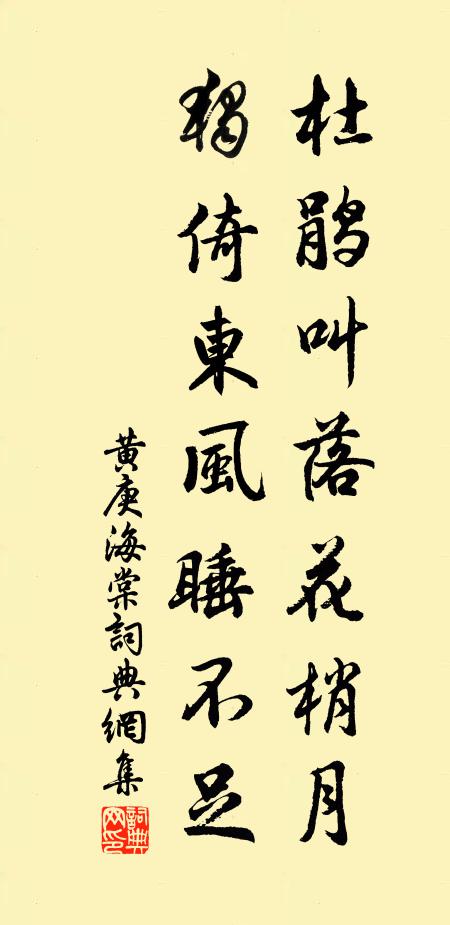 杜鹃叫落花梢月
獨倚東風睡不足
黃庚海棠詞典網集
詞典网印